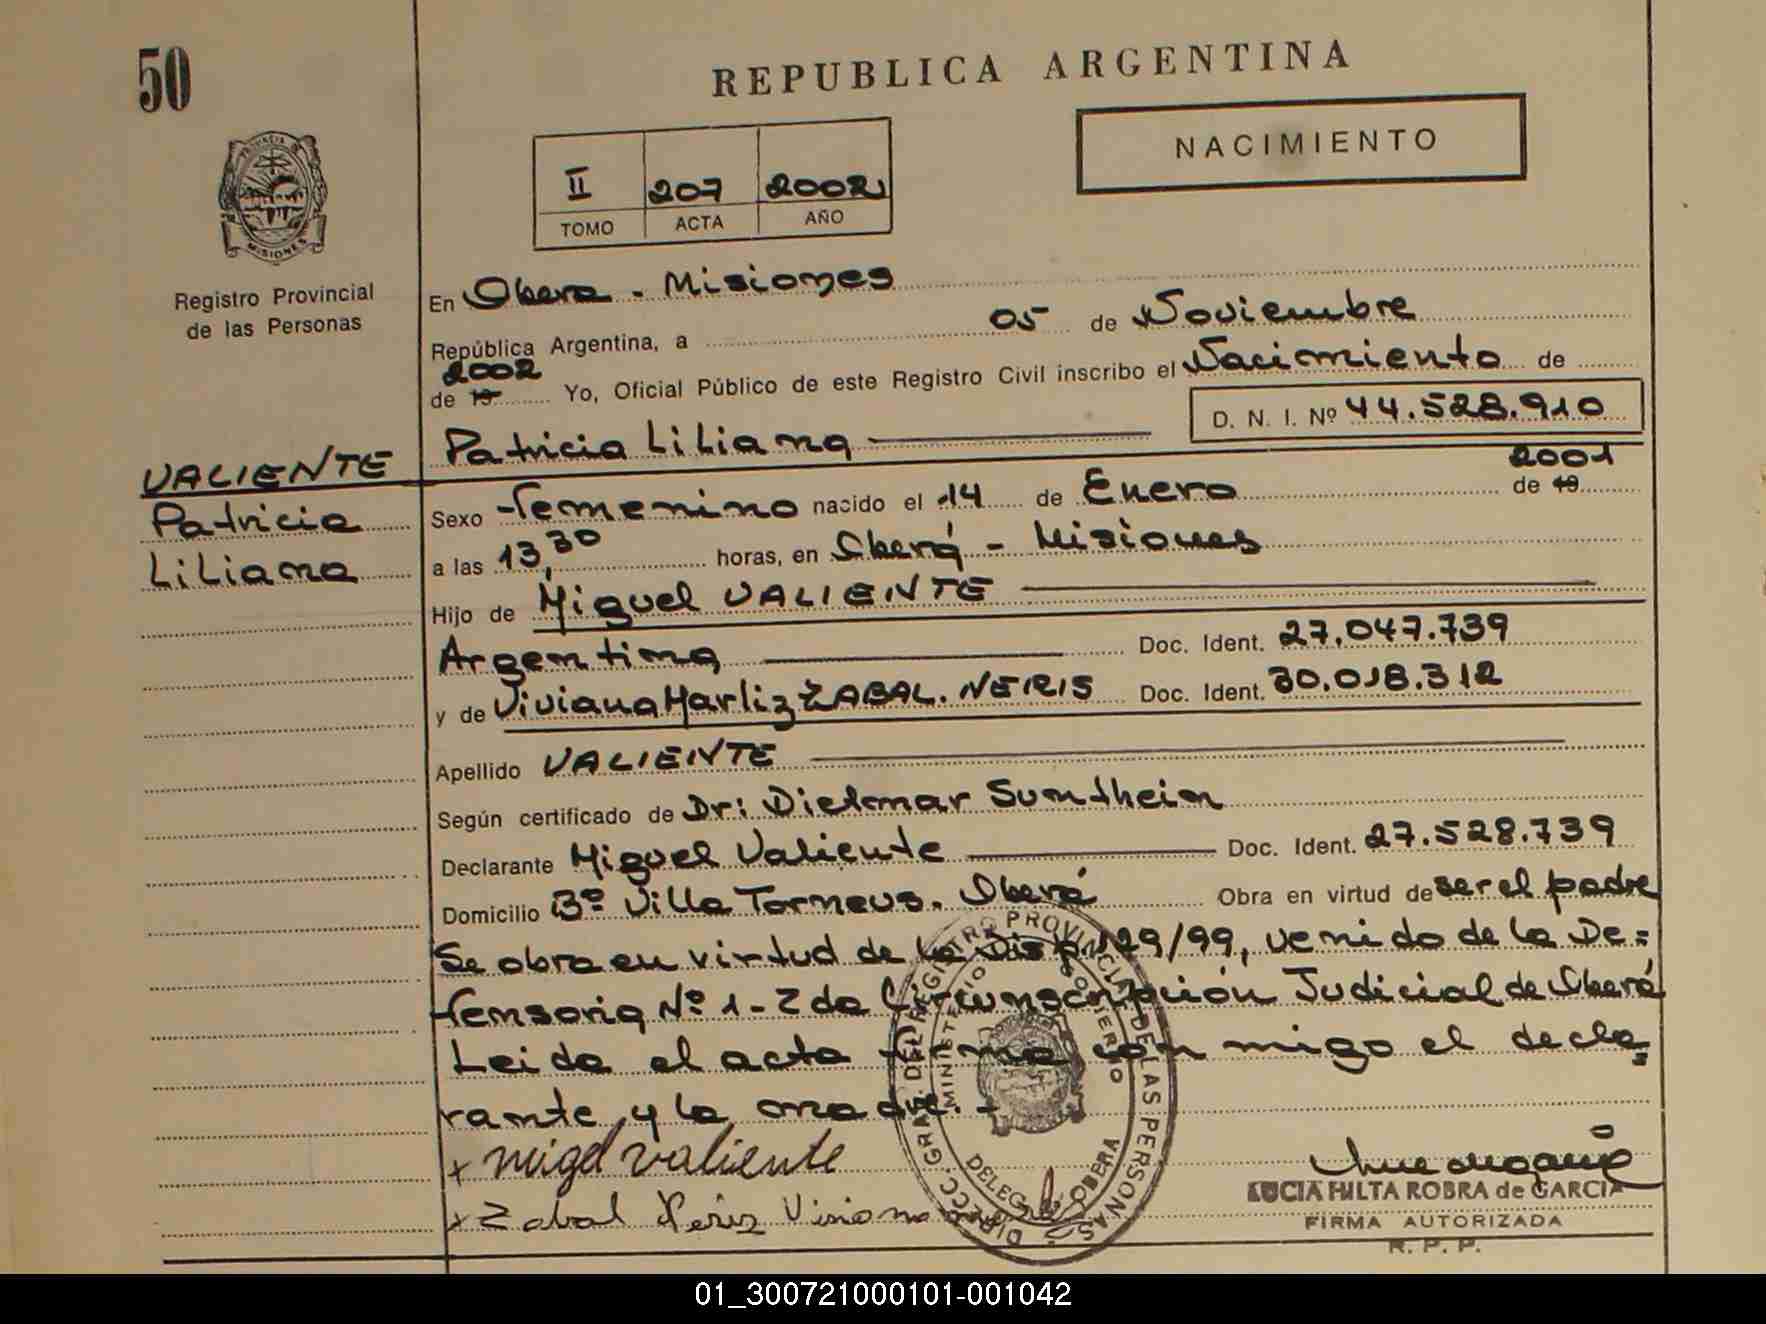 50
REPUBLICA ARGENTINA
NACIMIENTO
II 207 2002
TOMO ACTA AÑO
PROVINCIA DE
MISIONES
Registro Provincial
de las Personas
En Obera - Misiones
República Argentina, a 05 de Noviembre
2002
de 19 Yo, Oficial Público de este Registro Civil inscribo el Nacimiento de
D. N. I. Nº 44.528.910
Patricia Liliana
VALIENTE
Patricia
Liliana
2001
Sexo Femenino nacido el 14 de Enero de 19
a las 13,30 horas, en Oberá - Misiones
Hijo de Miguel VALIENTE
Argentina Doc. Ident. 27.047.739
y de Viviana Marliz ZABAL. NERIS Doc. Ident. 30.018.312
Apellido VALIENTE
Según certificado de Dr: Dietmar Suntheim
Declarante Miguel Valiente Doc. Ident. 27.528.739
Domicilio Bº Villa Torneus. Oberá Obra en virtud de ser el padre
Se obra en virtud de la Disp. 129/99, venido de la De=
fensoria Nº 1 - 2da Circunscripción Judicial de Oberá
Leida el acta firma con migo el decla=
rante y la madre. -
x migel valiente
x Zabal Neriz Viviana
DIRECC. GRAL. DEL REGISTRO PROVINCIAL DE LAS PERSONAS
MINISTERIO DE GOBIERNO
DELEG. OBERA
LUCIA HILTA ROBRA de GARCIA
FIRMA AUTORIZADA
R. P. P.
01_300721000101-001042